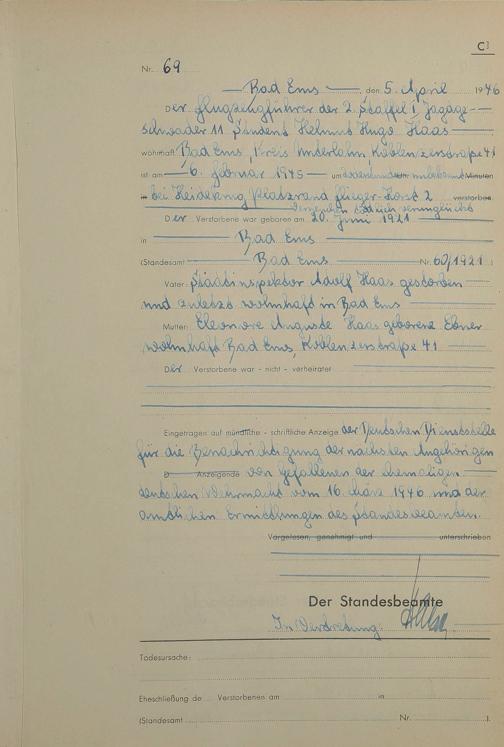 C¹
Nr. 69
Bad Ems, den 5. April 1946
Der Flugzeugführer der 2. Staffel I Jagdge-
schwader 11 Student Helmut Hugo Haas
wohnhaft Bad Ems, Kreis Unterlahn, Koblenzerstraße 41
ist am 6. Februar 1945 um Uhr Minuten
in bei Platzrand Flieger-Horst 2 verstorben.
tödlich verunglückt
Der Verstorbene war geboren am 20. Juni 1921
in Bad Ems
(Standesamt Bad Ems Nr. 60/1921)
Vater: Stadtinspektor Adolf Haas gestorben
und zuletzt wohnhaft in Bad Ems
Mutter: Eleonore Auguste Haas geborene Ebner
wohnhaft Bad Ems, Koblenzerstraße 41
Der Verstorbene war - nicht - verheiratet
Eingetragen auf mündliche - schriftliche Anzeige der Deutschen Dienststelle
für die Benachrichtigung der nächsten Angehörigen
D Anzeigende von Gefallenen der ehemaligen
deutschen Wehrmacht vom 16. März 1946 und der
amtlichen Ermittlungen des Standesbeamten.
Vorgelesen, genehmigt und unterschrieben
Der Standesbeamte
In Vertretung:
Todesursache:
Eheschließung de Verstorbenen am in
(Standesamt Nr. ).